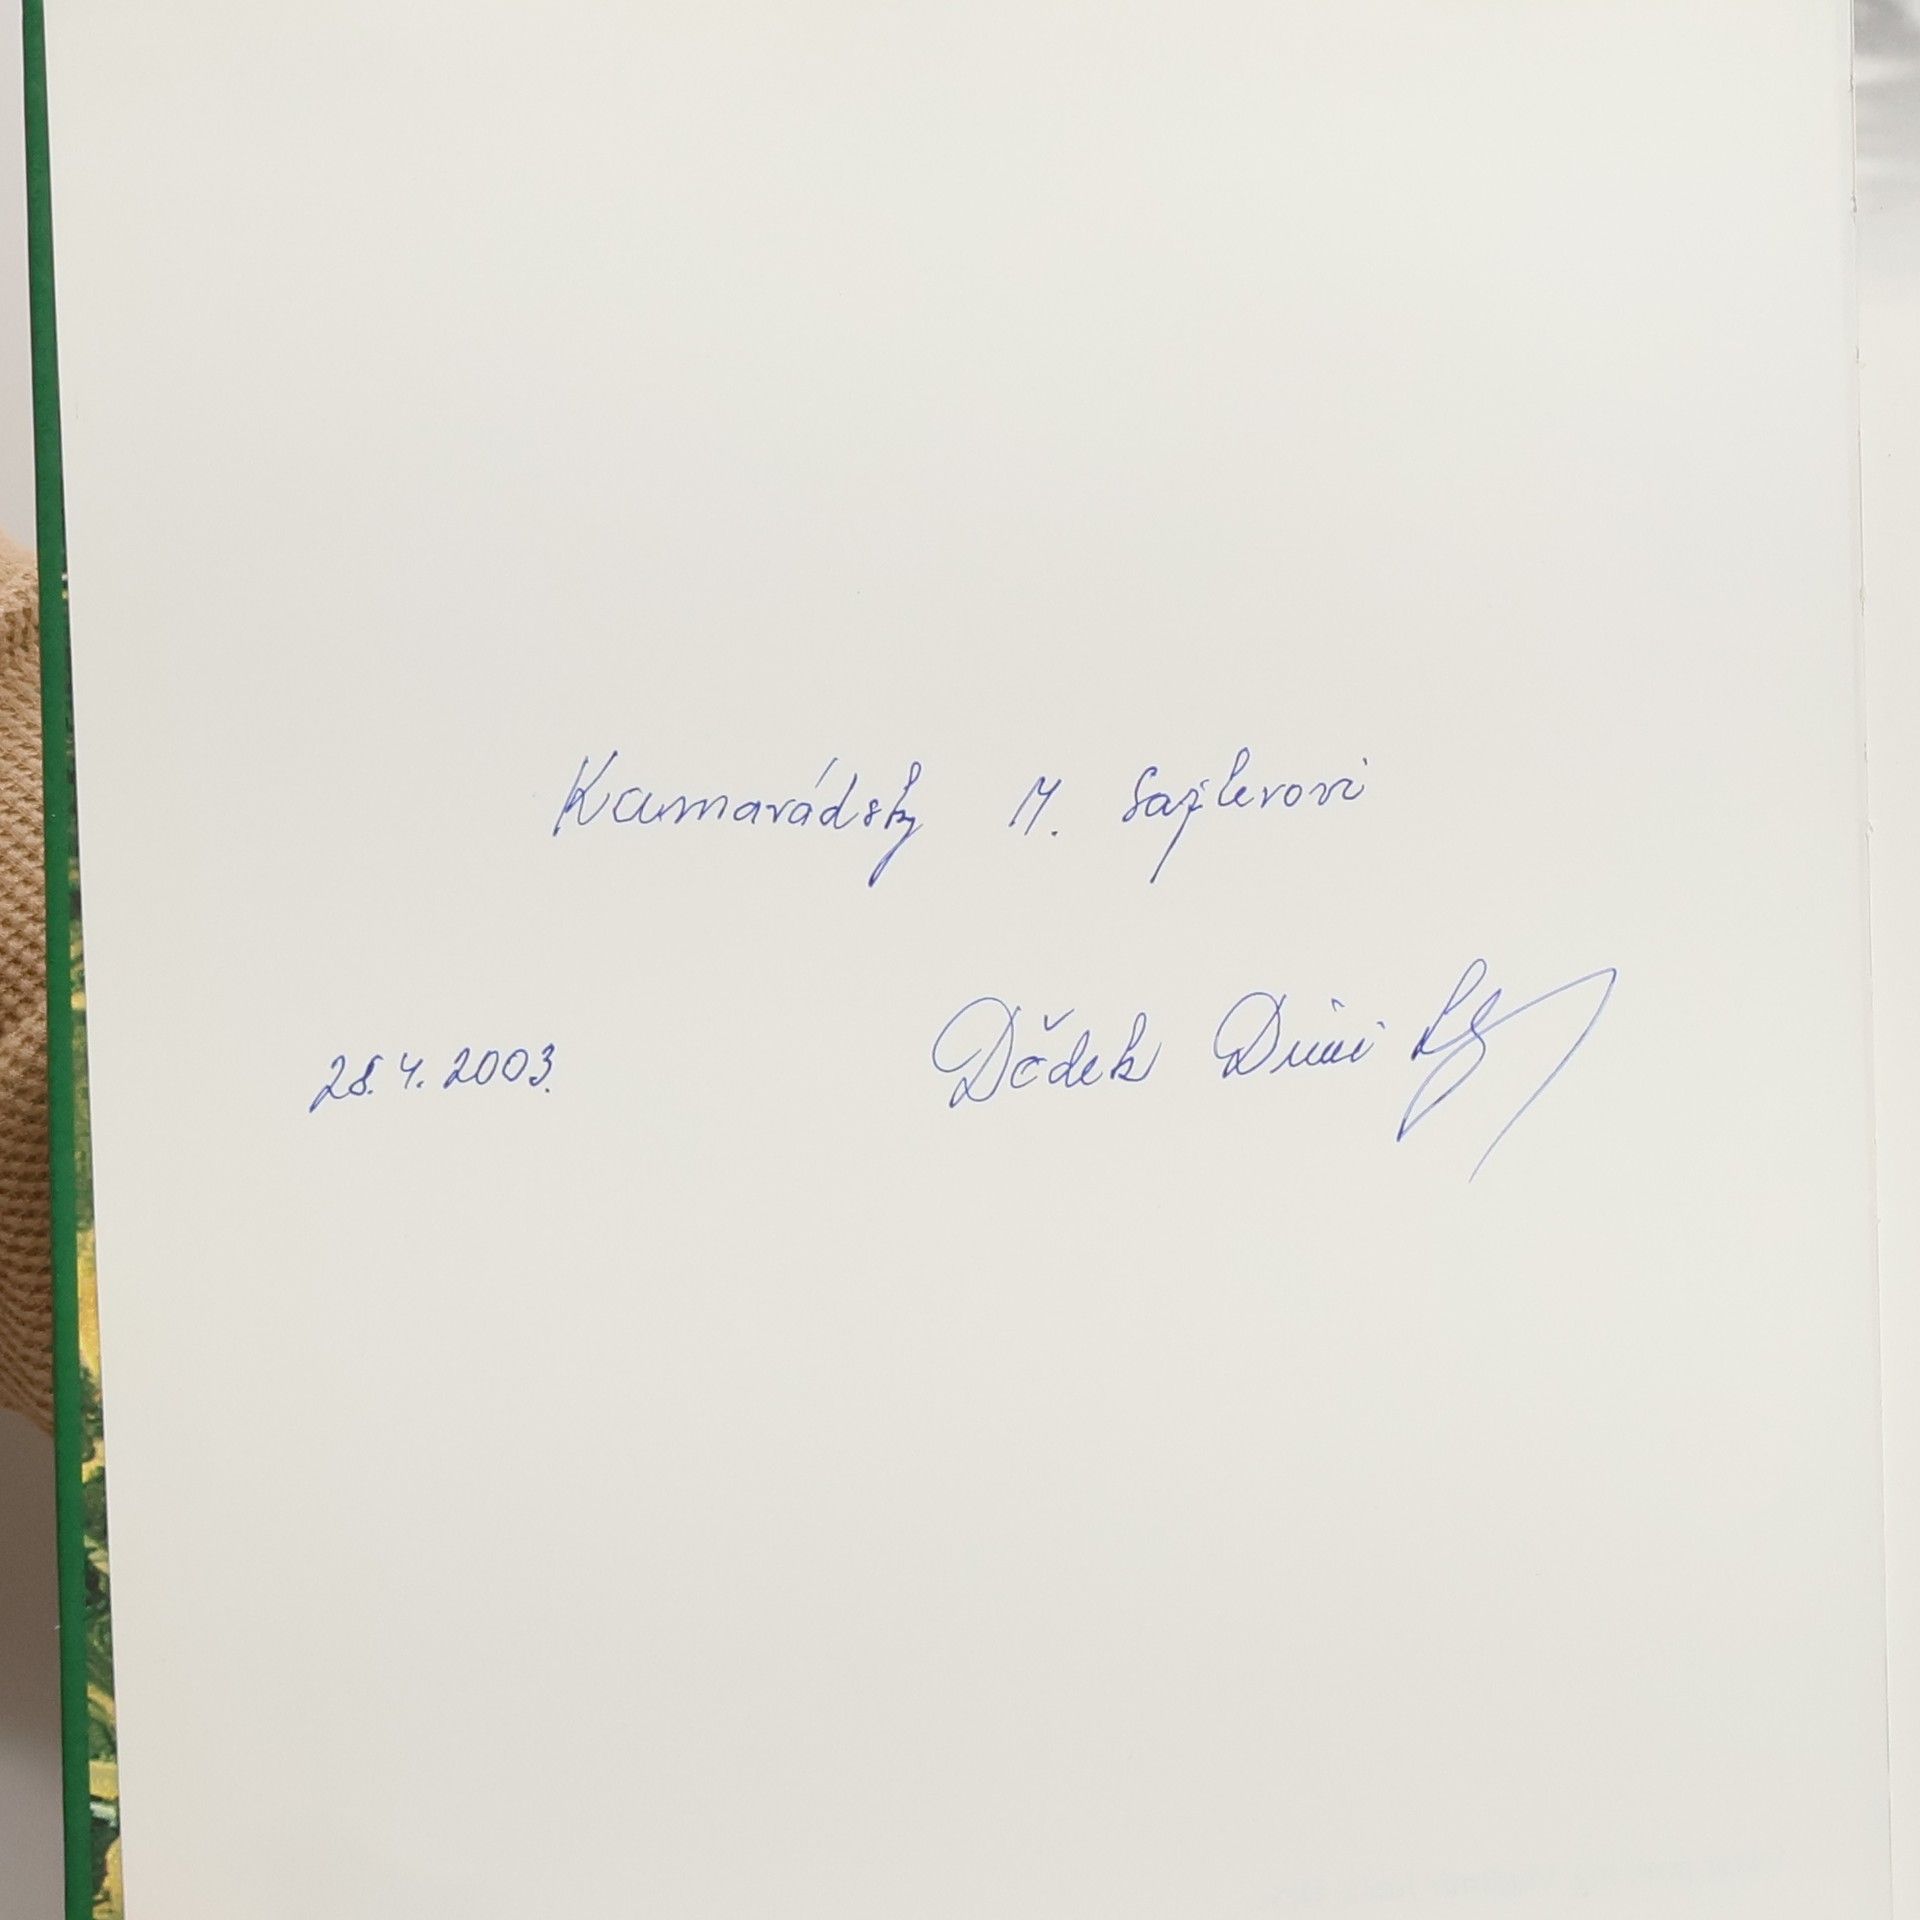 Kamarádsky M. Sajlerovi
28.4.2003. Dědek